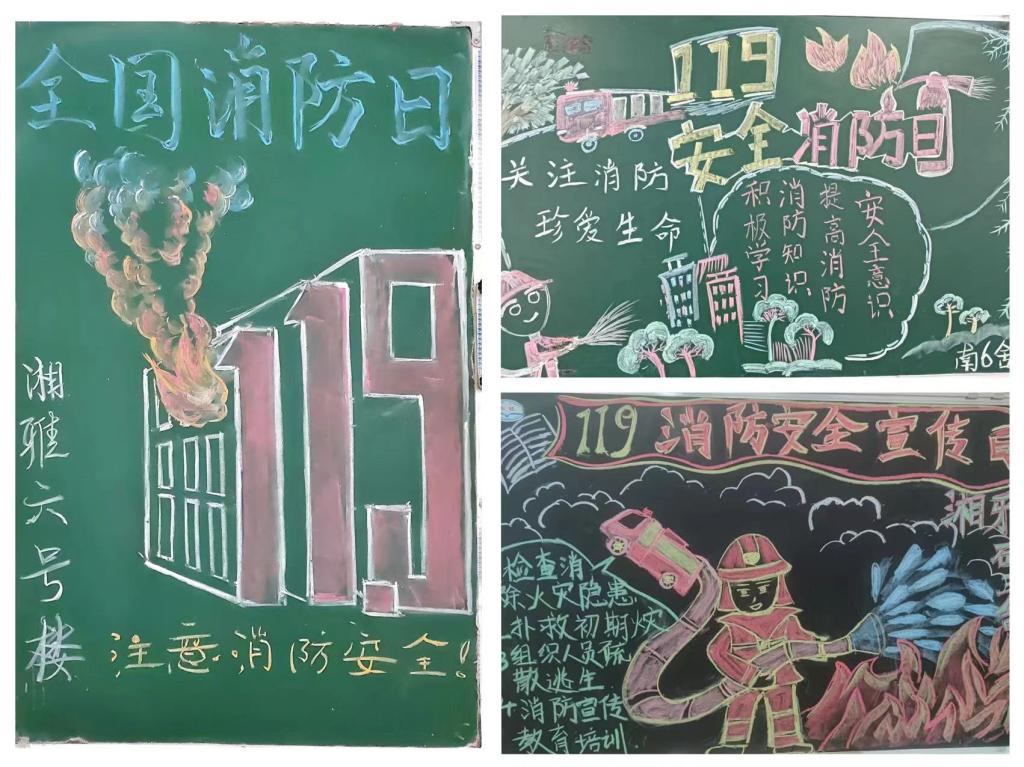 全国消防日
119
湘雅六号楼
注意消防安全！
119
安全消防日
关注消防
珍爱生命
安全意识
提高消防
消防知识
积极学习
南6舍
119 消防安全宣传日
湘雅
检查消
除火灾隐患
扑救初期火
3组织人员疏
散逃生
4消防宣传
教育培训